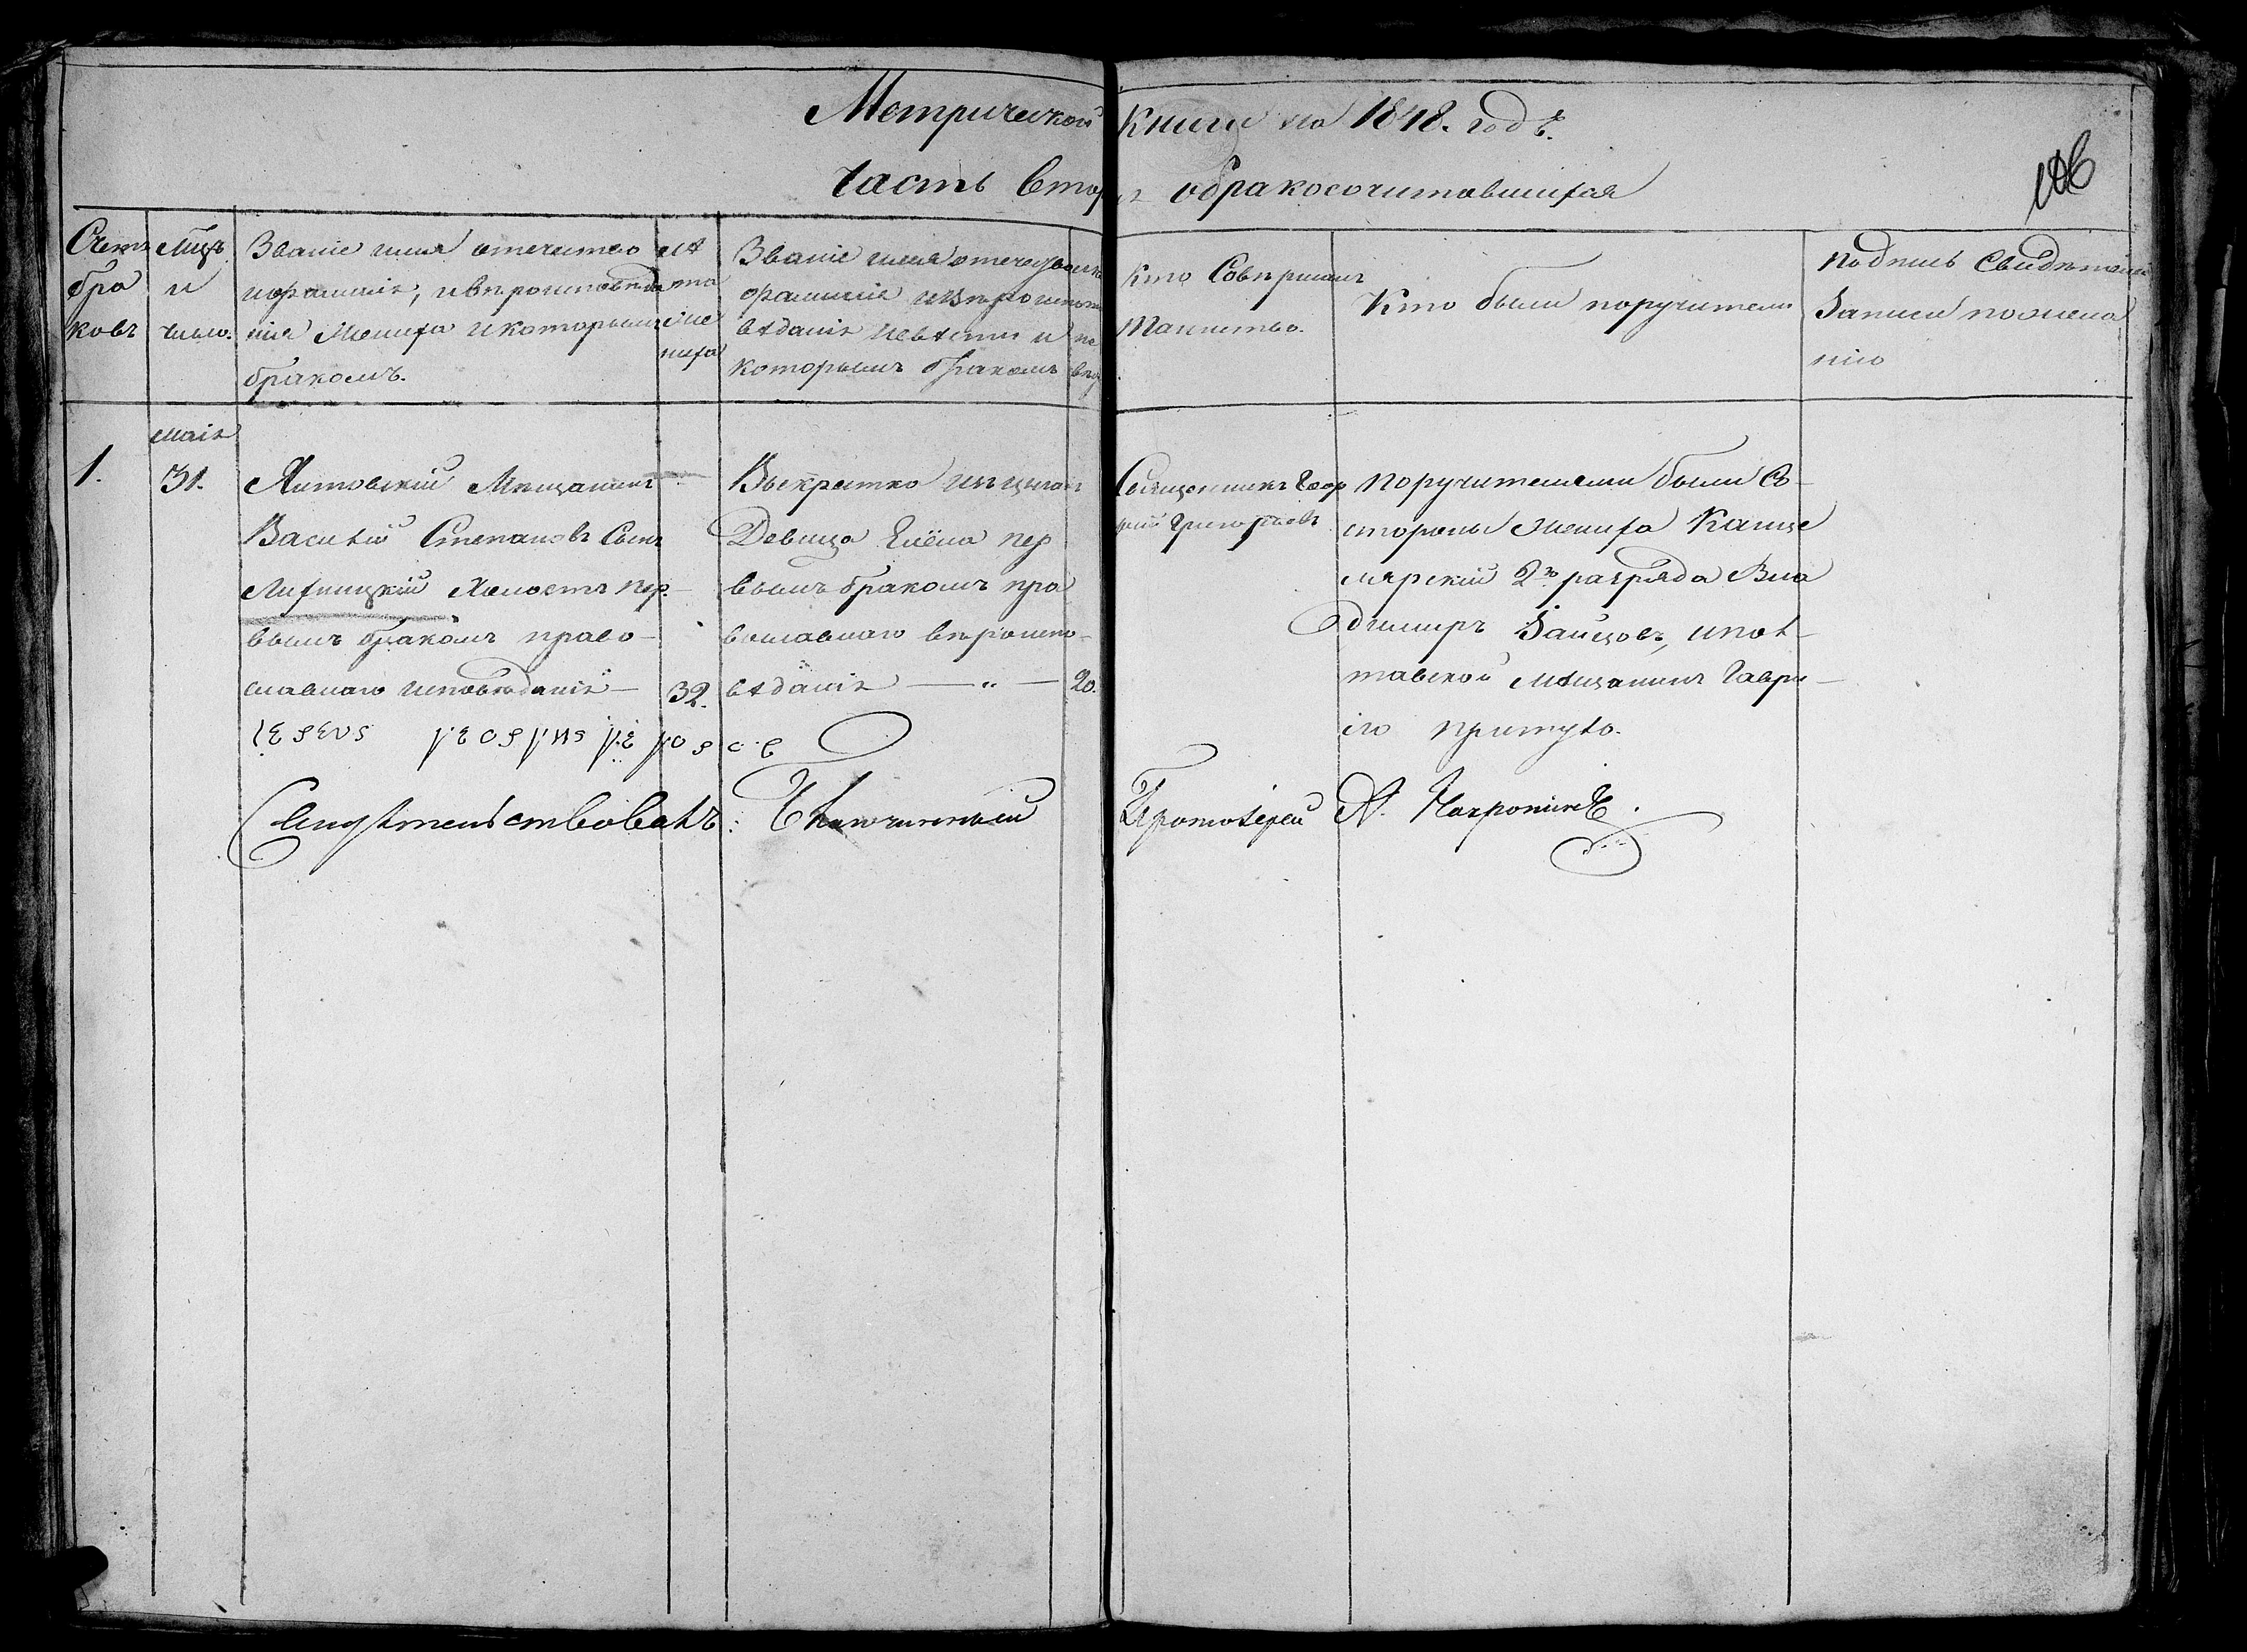 Метрической книги на 1848. годъ.
Часть вторая о бракосочитавшихся
Счетъ
бра
ковъ
Мцъ
и
число.
Званіе имя отечество
и фамилія, и вѣроисповѣда
нія Жениха и которымъ
бракомъ.
лѣ
та
Же
ниха
Званіе имя отечество
фамилія и вѣроиспо
вѣданія невѣсты и
которымъ бракомъ
Кто Совершалъ
Таинство.
Кто были поручители
подпись Свидѣтелей
Записи по жела
нію
1.
маія
31.
Мѣщанинъ
Василій Степановъ Сынъ
Холостъ пер-
вымъ бракомъ право-
славнаго исповѣданія —
32.
Выкрестка изъ цыган
Девица Елена пер
вымъ бракомъ пра
вославнаго вѣроиспо-
вѣданія — „ —
20.
Священникъ Геор
гій Григорьевъ
поручителями были Со
стороны жениха Канце
лярскій 2го разряда Вла
димиръ Зайцовъ, и пол
тавской мѣщанинъ Гаври-
іло Притуло.
Свидѣтельствовалъ: Благочинный Протоіерей А.